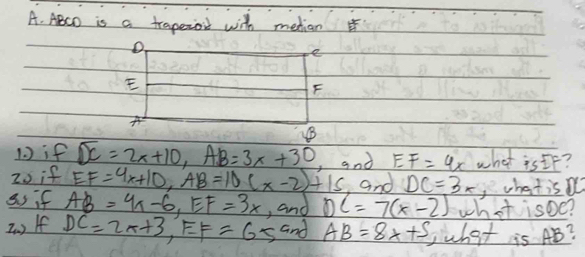 A. ABCD is a trapezoid with median
D
C
E
F
A
B
1.) if DC = 2x+10, AB = 3x+30, and EF = 4x what is EF?
2.) if EF = 4x+10, AB = 10(x-2)+15, and DC = 3x, what is DC
3.) if AB = 4x-6, EF = 3x, and DC = 7(x-2) what is DC?
2.) If DC = 2x+3, EF = 65 and AB = 8x+5, what is AB?